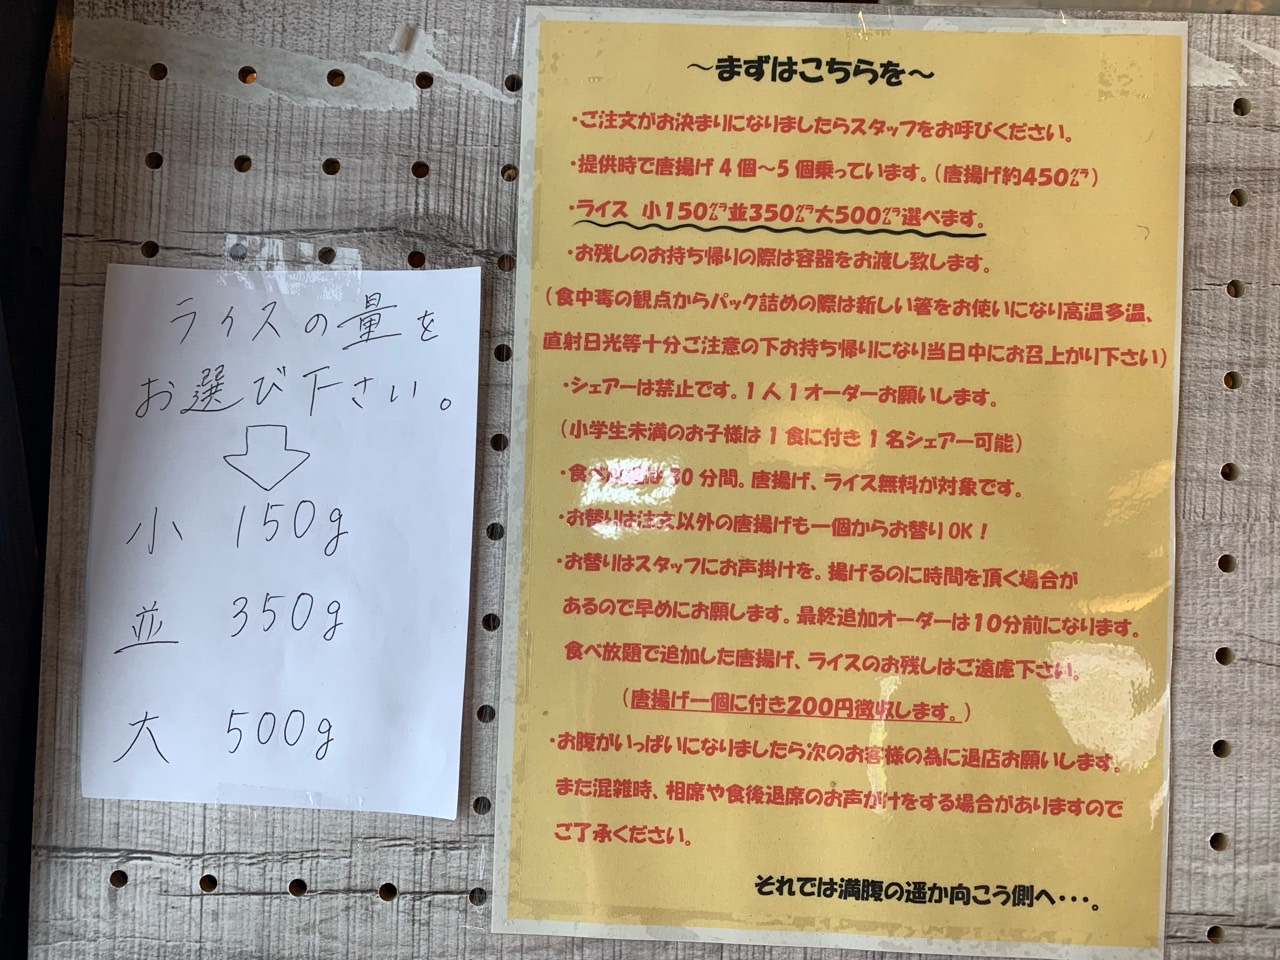 ライスの量を
お選び下さい。
小 150g
並 350g
大 500g
～まずはこちらを～
・ご注文がお決まりになりましたらスタッフをお呼びください。
・提供時で唐揚げ4個～5個乗っています。（唐揚げ約450㌘）
・ライス 小150㌘並350㌘大500㌘選べます。
・お残しのお持ち帰りの際は容器をお渡し致します。
（食中毒の観点からパック詰めの際は新しい箸をお使いになり高温多温、
直射日光等十分ご注意の下お持ち帰りになり当日中にお召上がり下さい）
・シェアーは禁止です。1人1オーダーお願いします。
（小学生未満のお子様は1食に付き1名シェアー可能）
・食べ は30分間。唐揚げ、ライス無料が対象です。
・お替りは注文以外の唐揚げも一個からお替りOK！
・お替りはスタッフにお声掛けを。揚げるのに時間を頂く場合が
あるので早めにお願します。最終追加オーダーは10分前になります。
食べ放題で追加した唐揚げ、ライスのお残しはご遠慮下さい。
（唐揚げ一個に付き200円徴収します。）
・お腹がいっぱいになりましたら次のお客様の為に退店お願いします。
また混雑時、相席や食後退席のお声がけをする場合がありますので
ご了承ください。
それでは満腹の遥か向こう側へ・・・。